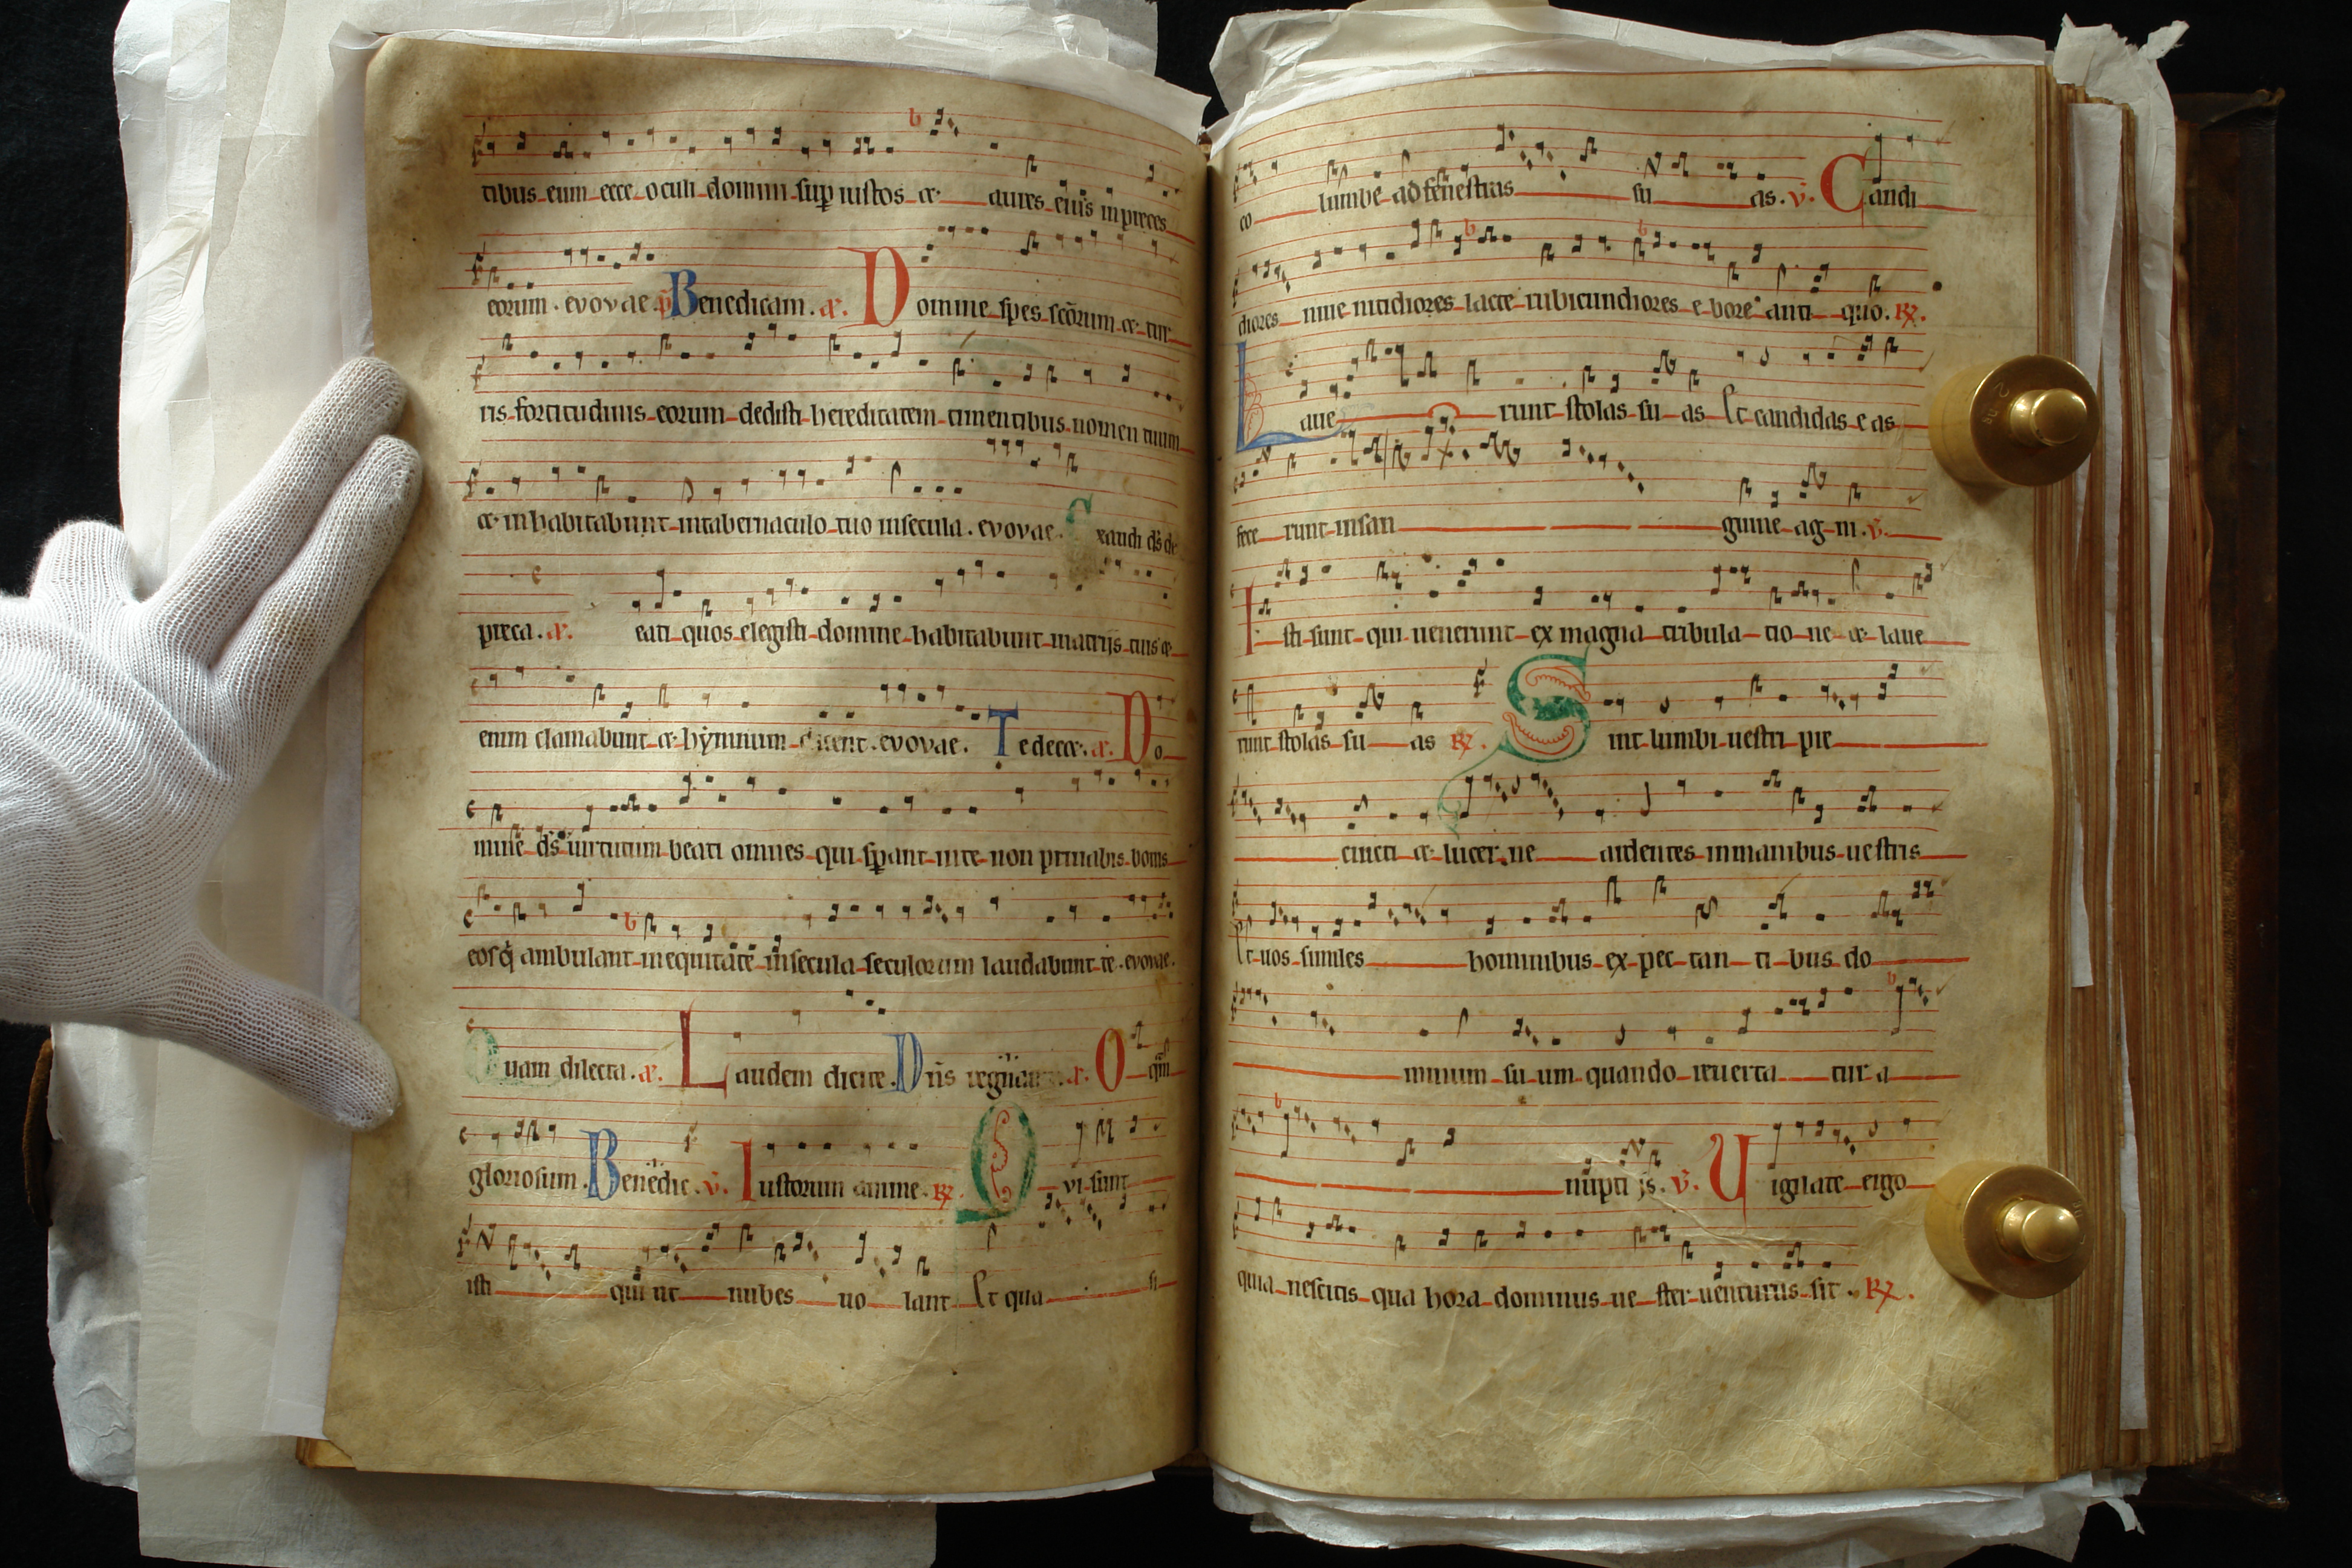 tibus eum ecce oculi domini sup iustos et aures eius in preces
eorum . evovae . p Benedicam . a . Domine spes scorum et tur
ris fortitudinis eorum dedisti hereditatem timentibus nomen tuum
et inhabitabunt in tabernaculo tuo in secula . evovae . Exaudi ds de
preca . a . eati quos elegisti domine habitabunt in atrijs tuis et
enim clamabunt et hymnum dicent . evovae . Te decet . a . Do
mine ds virtutum beati omnes qui sperant in te non privabis bonis
eos q ambulant in equitate in secula seculorum laudabunt te . evovae .
Quam dilecta . a . Laudem dicite . Dns regn a . O qm
gloriosum . Benedic . v . Iustorum anime . R . Qvi sunt
isti qui ut nubes uo lant Et qua si
co lumbe ad fenestras su as . v . Candi
diores niue nitidiores lacte rubicundiores e bore anti quo . R .
Laue runt stolas su as Et candidas e as
fece runt in san guine ag ni . v .
Isti sunt qui uenerunt ex magna tribula tio ne et laue
runt stolas su as R . Sint lumbi uestri pre
cincti et lucer ne ardentes in manibus uestris
Et uos similes hominibus ex pec tan ti bus do
minum su um quando reuerta tur a
nupti js . v . Uigilate ergo
quia nescitis qua hora dominus ue ster uenturus sit . R .